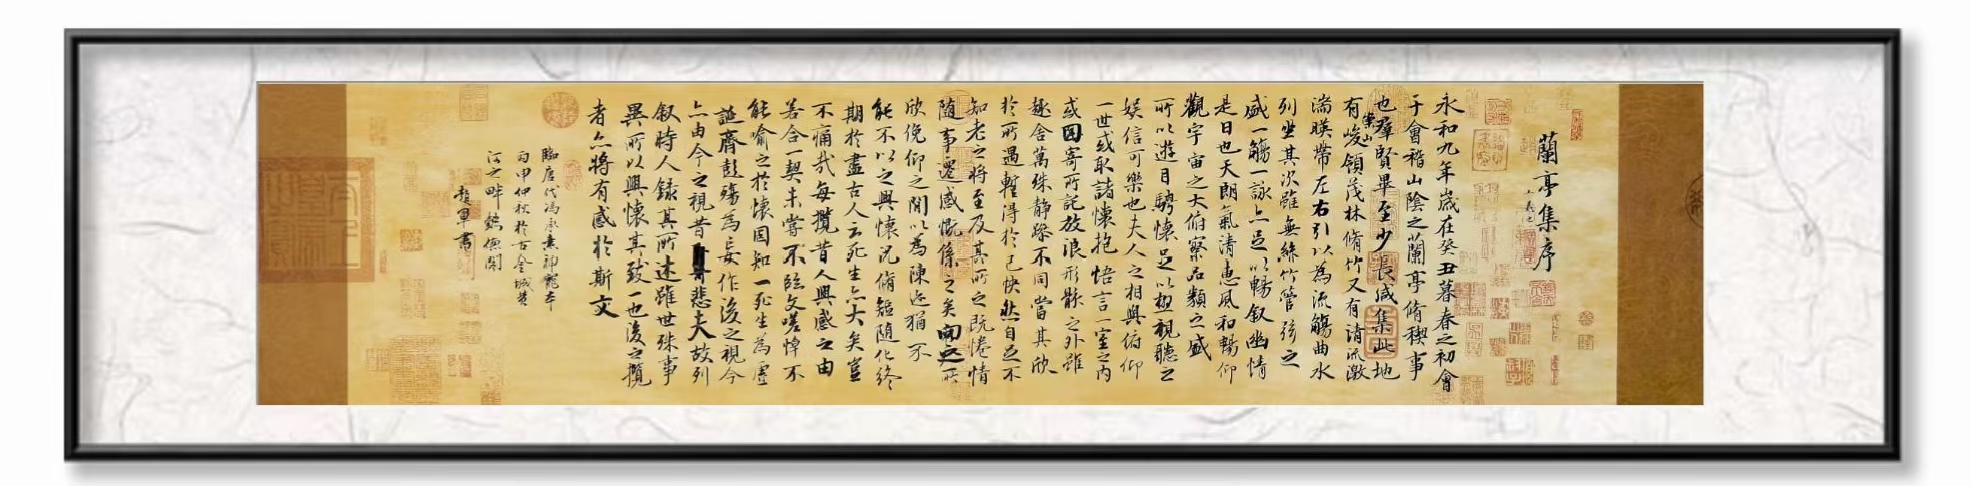 蘭亭集序
永和九年歲在癸丑暮春之初會
于會稽山陰之蘭亭脩稧事
也羣賢畢至少長咸集此地
有崇山峻領茂林脩竹又有清流激
湍暎帶左右引以為流觴曲水
列坐其次雖無絲竹管弦之
盛一觴一詠亦足以暢叙幽情
是日也天朗氣清惠風和暢仰
觀宇宙之大俯察品類之盛
所以遊目騁懷足以極視聽之
娛信可樂也夫人之相與俯仰
一世或取諸懷抱悟言一室之內
或因寄所託放浪形骸之外雖
趣舍萬殊靜躁不同當其欣
於所遇暫得於己快然自足不
知老之將至及其所之既惓情
隨事遷感慨係之矣向之所
欣俛仰之間以為陳迹猶不
能不以之興懷況脩短隨化終
期於盡古人云死生亦大矣豈
不痛哉每攬昔人興感之由
若合一契未嘗不臨文嗟悼不
能喻之於懷固知一死生為虛
誕齊彭殤為妄作後之視今
亦由今之視昔悲夫故列
叙時人錄其所述雖世殊事
異所以興懷其致一也後之攬
者亦將有感於斯文
臨唐代馮承素神龍本
丙申仲秋於古金城黃
河之畔